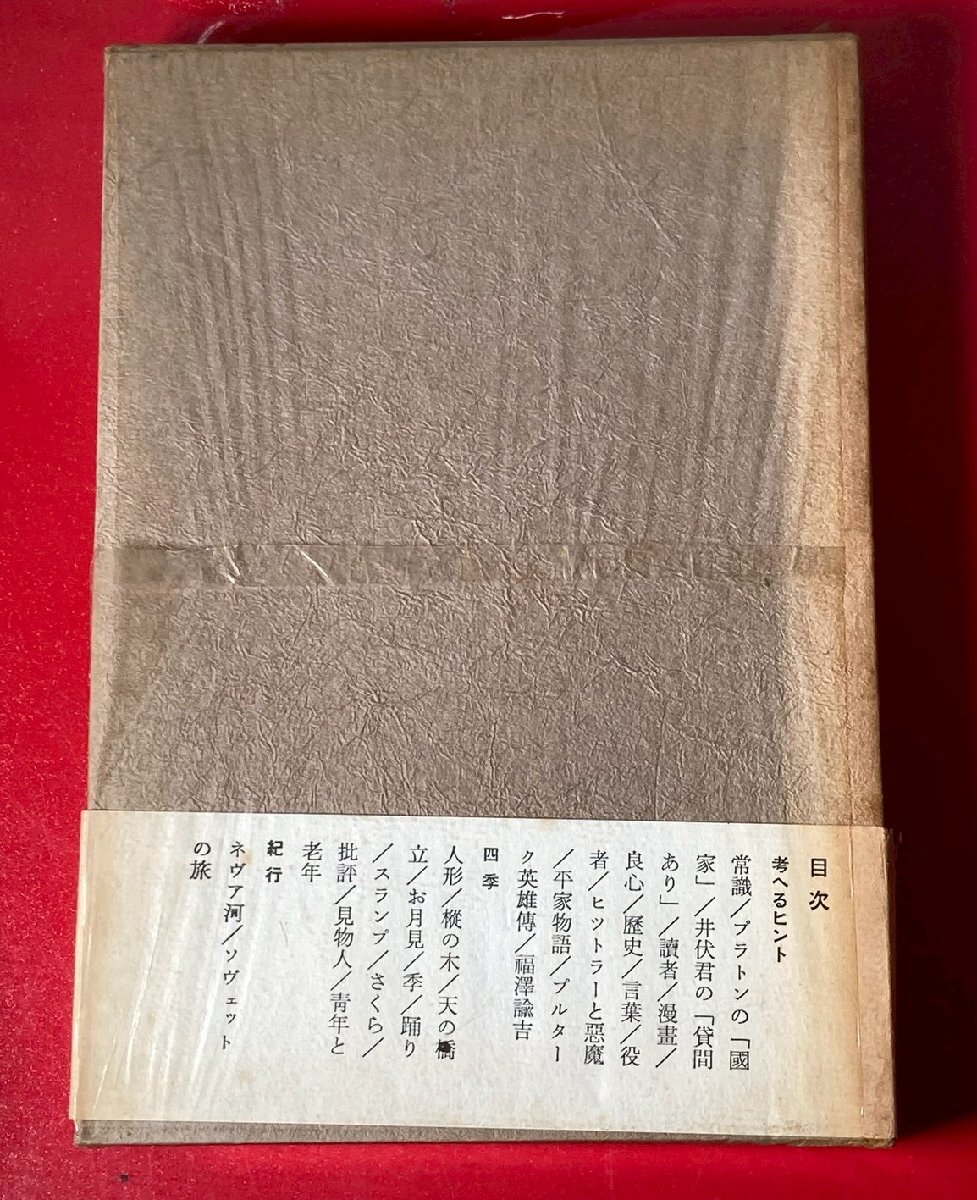 目次
考へるヒント
常識／プラトンの「國
家」／井伏君の「貸間
あり」／讀者／漫畫／
良心／歷史／言葉／役
者／ヒットラーと惡魔
／平家物語／プルター
ク英雄傳／福澤諭吉
四季
人形／樅の木／天の橋
立／お月見／季／踊り
／スランプ／さくら／
批評／見物人／靑年と
老年
紀行
ネヴァ河／ソヴェット
の旅